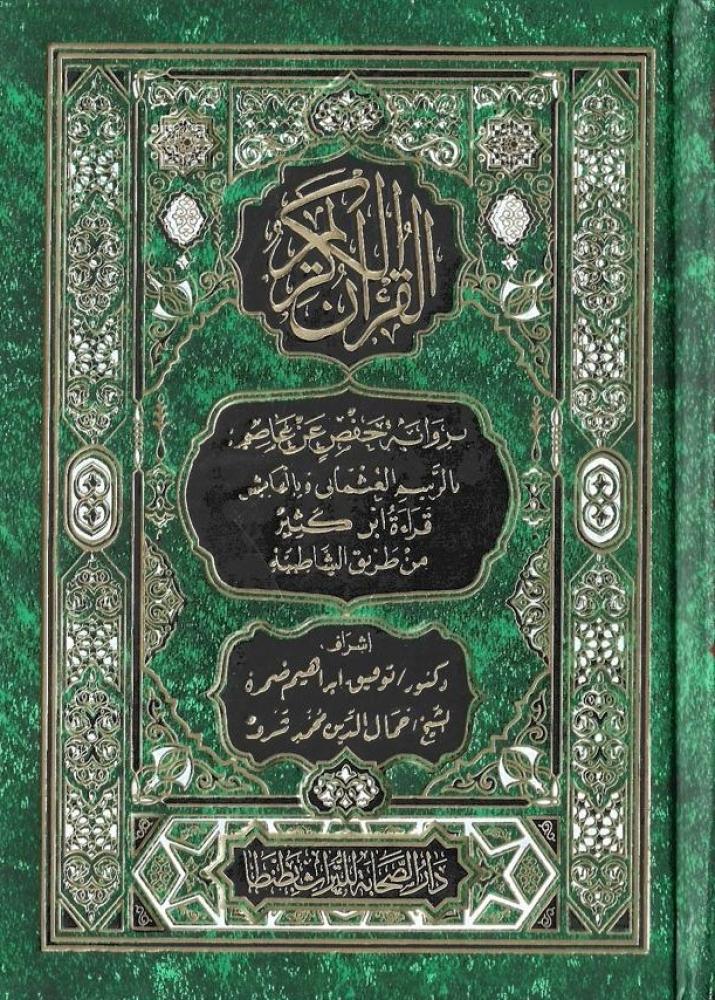 القرآن الكريم
برواية حفص عن عاصم
بالرسم العثماني وبالهامش
قراءة ابن كثير
من طريق الشاطبية
إشراف
دكتور/ توفيق إبراهيم ضمرة
لشيخ/ جمال الدين محمد شرف
دار الصحابة للتراث بطنطا